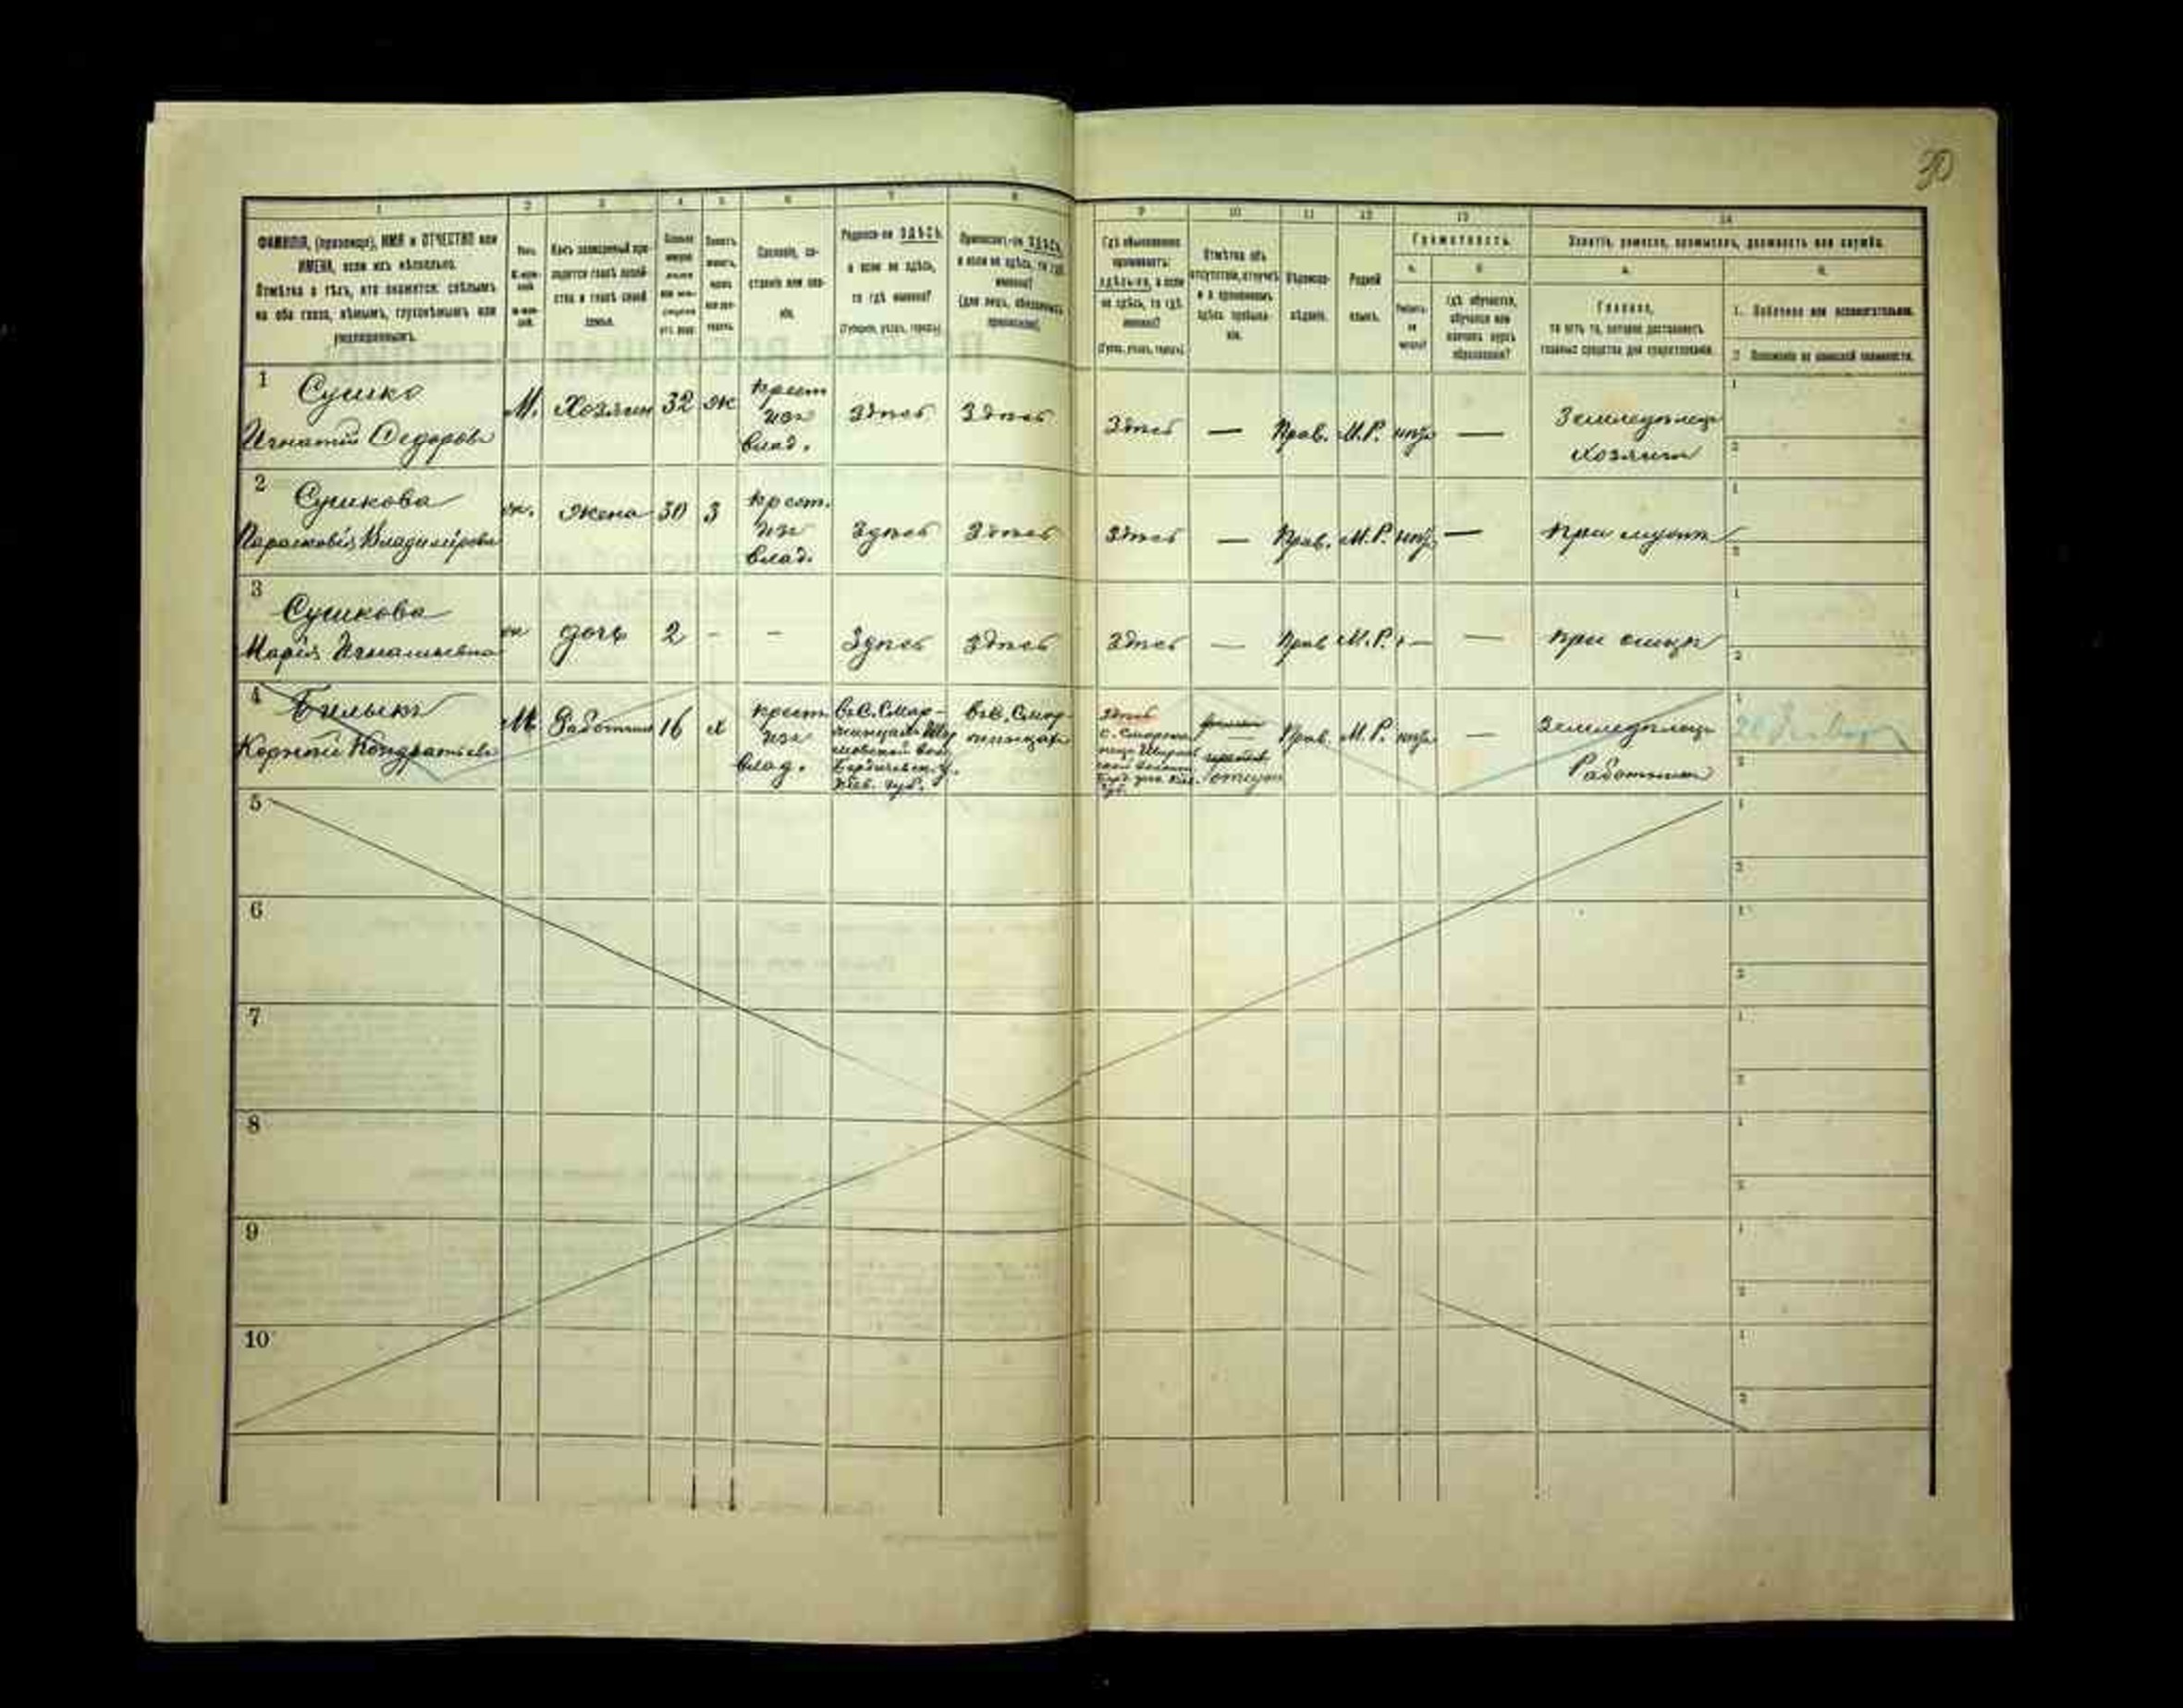 30
1 2 3 4 5 6 7 8 9 10 11 12 13 14
ФАМИЛІЯ, (прозвище), ИМЯ и ОТЧЕСТВО или
ИМЕНА, если ихъ нѣсколько.
Отмѣтка о тѣхъ, кто окажется: слѣпымъ
на оба глаза, нѣмымъ, глухонѣмымъ или
умалишеннымъ.
Какъ записанный при-
ходится главѣ хозяй-
ства и главѣ своей
семьи.
Сословіе, со-
стояніе или зва-
ніе.
Родился-ли ЗДѢСЬ,
а если не здѣсь,
то гдѣ именно?
(Губернія, уѣздъ, городъ).
Приписанъ-ли ЗДѢСЬ,
а если не здѣсь, то гдѣ
именно?
(для лицъ, обязанныхъ
припискою).
Гдѣ обыкновенно
проживаетъ:
здѣсь-ли, а если
не здѣсь, то гдѣ
именно?
(Губер., уѣздъ, городъ).
Отмѣтка объ
отсутствіи, отлучкѣ
и о временномъ
здѣсь пребыва-
ніи.
Вѣроиспо-
вѣданіе.
Родной
языкъ.
Грамотность.
а.
б.
Гдѣ обучается,
обучался или
кончилъ курсъ
образованія?
Занятіе, ремесло, промыселъ, должность или служба.
а.
Главное,
то есть то, которое доставляетъ
главныя средства для существованія.
б.
1. Побочное или вспомогательное.
2. Положеніе по воинской повинности.
1 Сушко
Игнатій Федоровъ
М. Хозяинъ 32 ж
крест
изъ
влад.
Здѣсь Здѣсь Здѣсь — Прав. М.Р. нѣтъ —
Земледѣлецъ
Хозяинъ
1
2
2 Сушкова
Парасковія Владимірова
ж. жена 30 З
крест.
изъ
влад.
Здѣсь Здѣсь Здѣсь — Прав. М.Р. нѣтъ — При мужѣ
1
2
3 Сушкова
Марія Игнатьевна
ж дочь 2 - - Здѣсь Здѣсь Здѣсь — Прав М.Р. — — при отцѣ
1
2
4 Билыкъ
Корнѣй Кондратьевъ
М. Работник 16 х
крест
изъ
влад.
Бердичевск. у.
Кіев. губ.
Здѣсь
Прав. М.Р. нѣтъ —
Земледѣлецъ
Работникъ
1
2
5
1
2
6
1
2
7
1
2
8
1
2
9
1
2
10
1
2